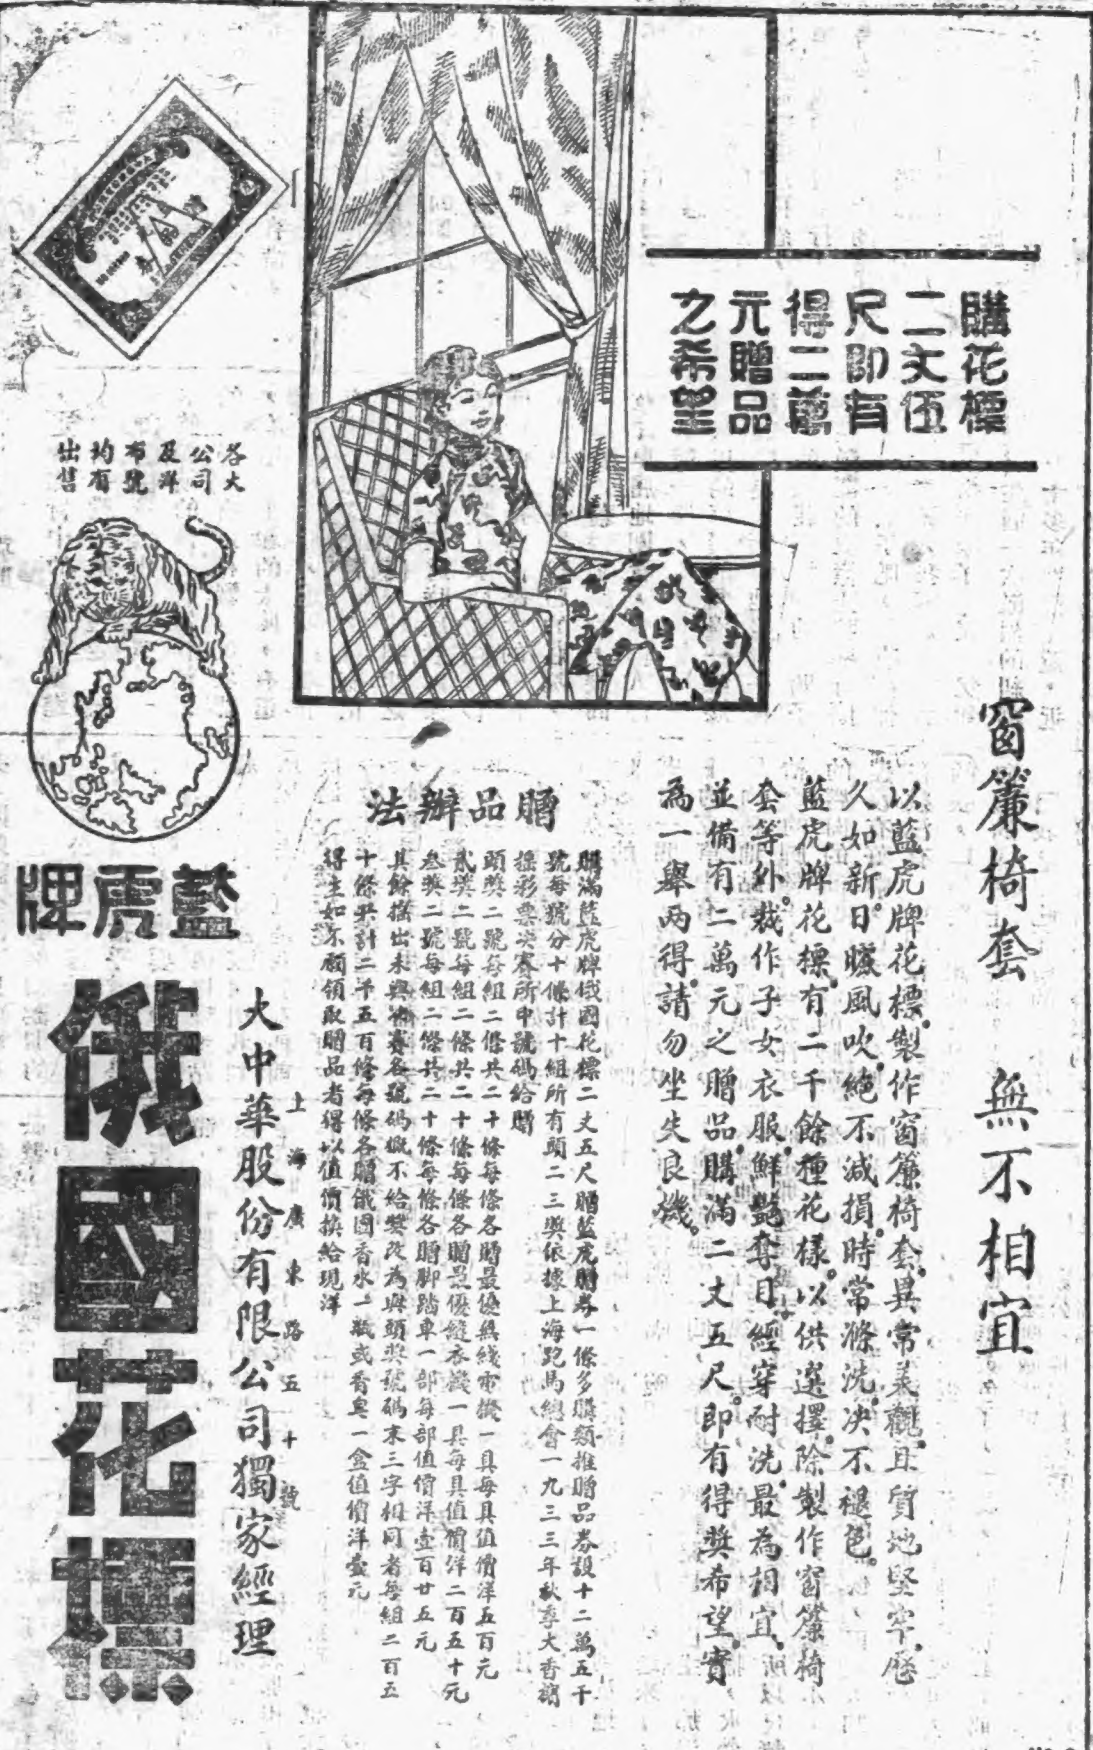 購花標
二丈伍
尺即有
得二萬
元贈品
之希望
窗簾椅套 無不相宜
以藍虎牌花標。製作窗簾椅套。異常美觀。且質地堅牢。歷
久如新。日曬風吹。絕不減損。時常滌洗。决不褪色。
藍虎牌花標。有二千餘種花樣。以供選擇。除製作窗簾椅
套等外。裁作子女衣服。鮮艷奪目。經穿耐洗。最為相宜。
並備有二萬元之贈品。購滿二丈五尺。即有得奬希望。實
為一舉两得。請勿坐失良機。
贈品辦法
購滿藍虎牌俄國花標二丈五尺贈藍虎贈券一條多購類推贈品券設十二萬五千
號每號分十條計十組所有頭二三奬依據上海跑馬總會一九三三年秋季大香檳
搖彩票决賽所中號碼給贈
頭奬二號每組二條共二十條每條各贈最優無綫電機一具每具值價洋五百元
貳奬二號每組二條共二十條每條各贈最優縫衣機一具每具值價洋二百五十元
叁奬二號每組二條共二十條每條各贈脚踏車一部每部值價洋壹百廿五元
其餘搖出未與决賽各號碼概不給奬改為與頭奬號碼末三字相同者每組二百五
十條共計二千五百條每條各贈俄國香水一瓶或香皂一盒值價洋壹元
得主如不願領取贈品者得以值價換給現洋
各大
公司
及洋
布號
均有
出售
藍虎牌
俄國花標
上海廣東路五十號
大中華股份有限公司獨家經理